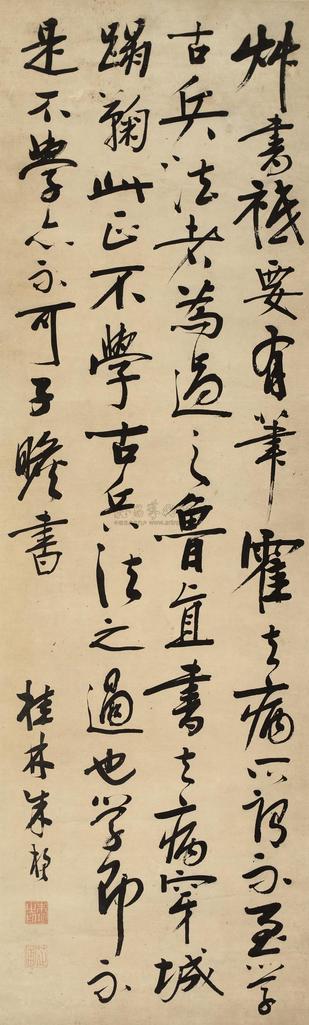 艸書祗要有筆霍去病所謂不至學
古兵法者為過之魯直書去病穿城
蹋鞠此正不學古兵法之過也學即不
是不學亦不可子瞻書
桂林朱